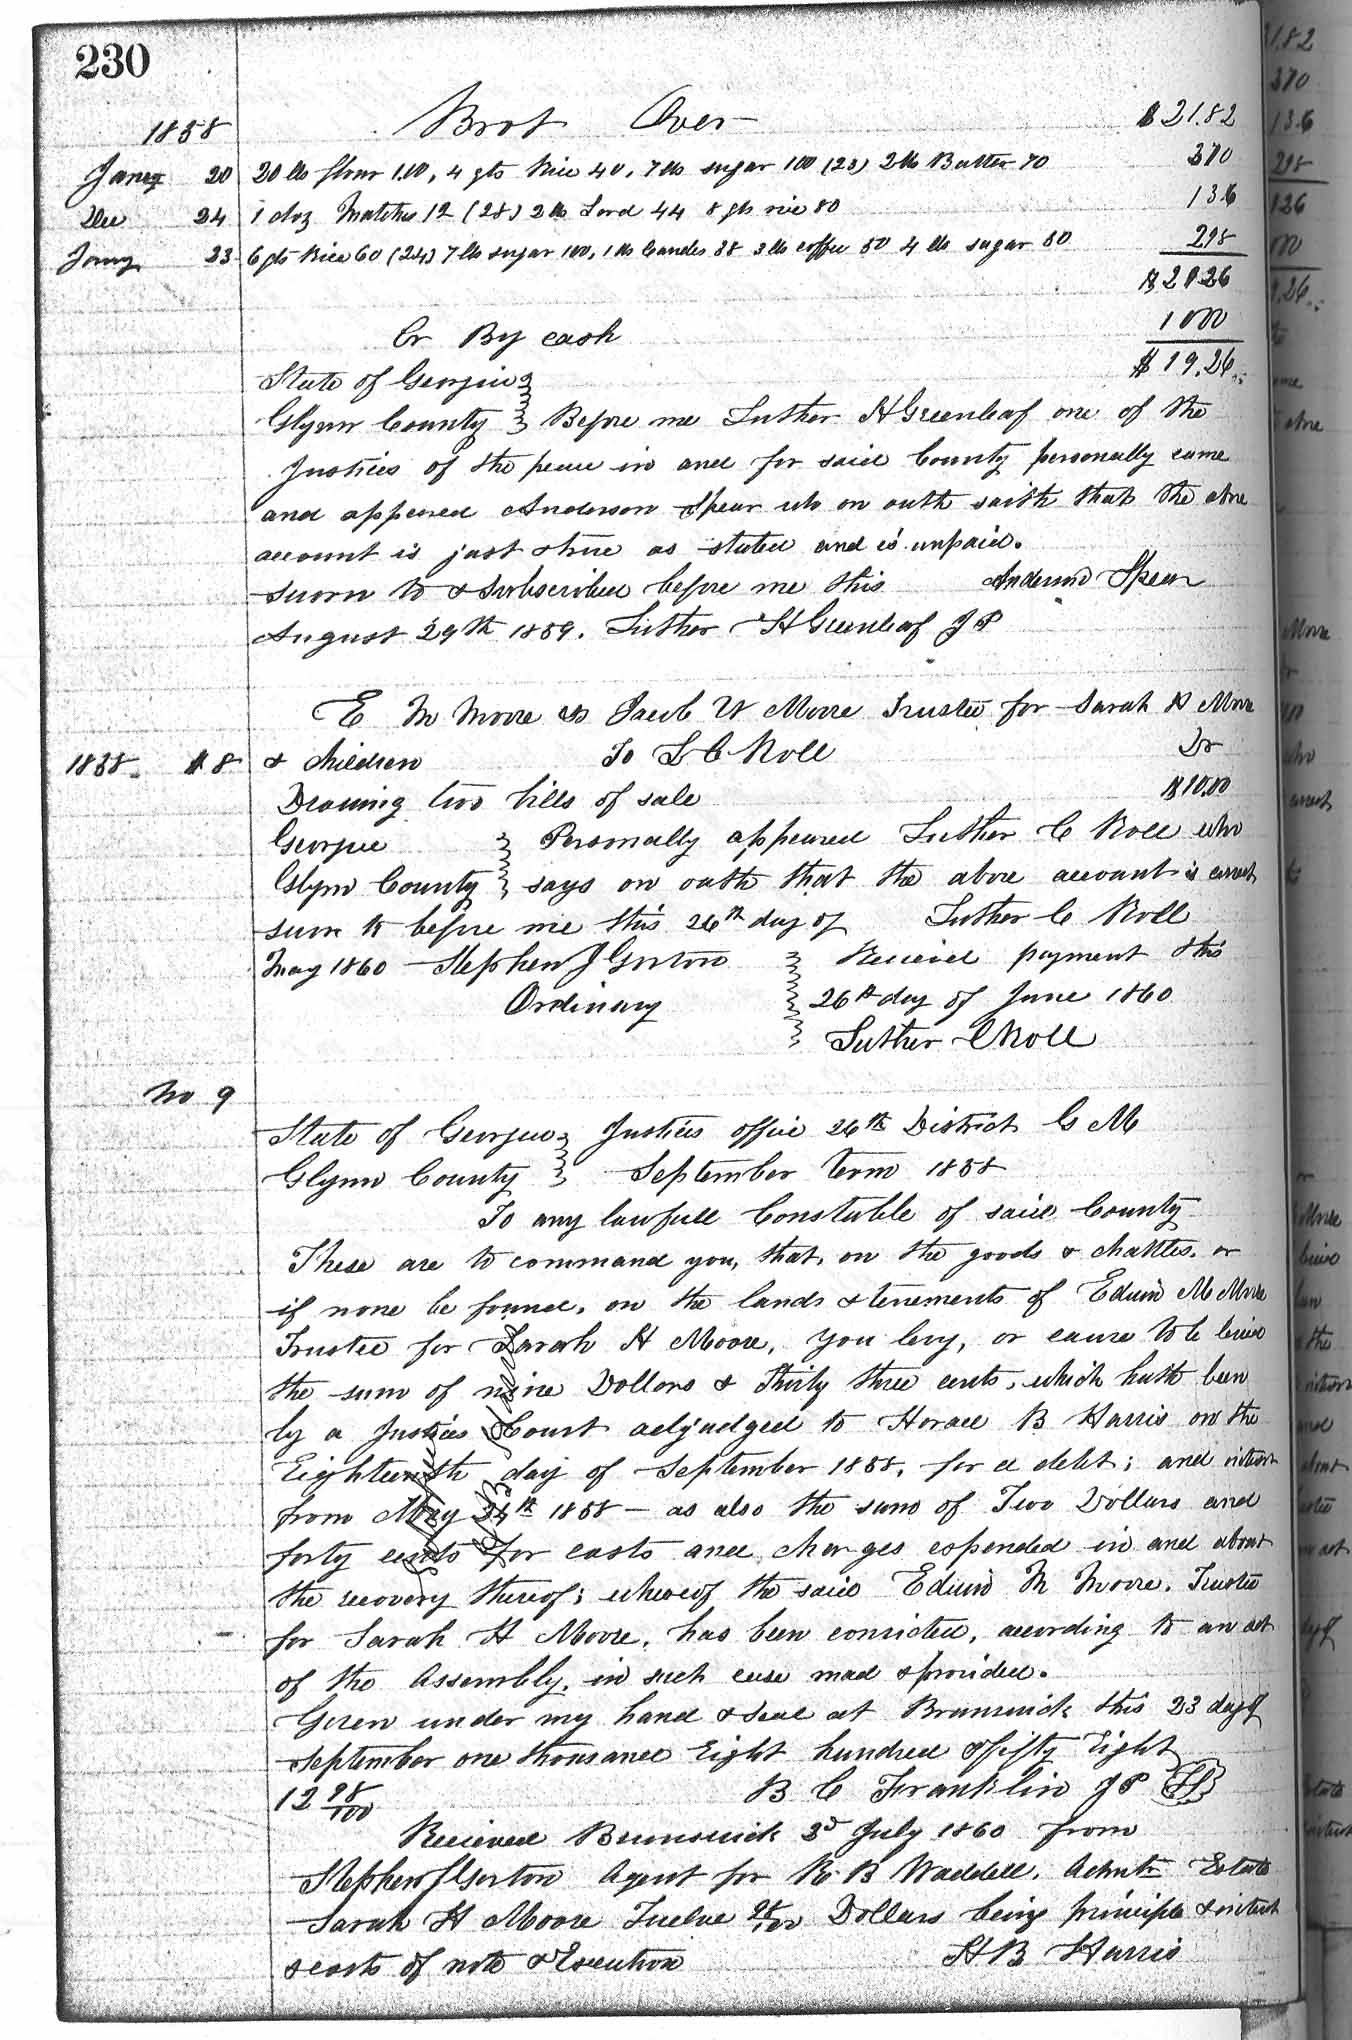 230
1858 Brot Over $21.82
Jany 20 20 lbs flour 1.10, 4 qts Rice 40, 7 lbs sugar 100 (23) 2 lb Butter 70 370
Dec 24 1 doz Matches 12 (28) 2 lb Lard 44 8 qts rice 80 136
Jany 23 6 qts Rice 60 (24) 7 lb sugar 100, 1 lb Candes 38 3 lb coffee 50 4 lb sugar 50 298
$29.26
Cr By cash 1000
$19.26
State of Georgia
Glynn County Before me Luther H Greenleaf one of the
Justices of the peace in and for said County personally came
and appeared Anderson Spear who on oath saith that the abve
account is just & true as stated and is unpaid.
sworn to & subscribed before me this Anderson Spear
August 29th 1859. Luther H Greenleaf J P
E M Moore & Jacob W Moore Trustee for Sarah H Moore
1858 # 8 & children To L C Roll Dr
Drawing two bills of sale $10.00
Georgia Personally appeared Luther C Roll who
Glynn County says on oath that the above account is correct
sworn to before me this 26th day of Luther C Roll
May 1860 Stephen J Gorton Recieved payment this
Ordinary 26th day of June 1860
Luther C Roll
No 9
State of Georgia Justices office 26th District G M
Glynn County September Term 1858
To any lawfull Constable of said County
These are to command you, that, on the goods & chattles, or
if none be found, on the lands & tenements of Edwin M Moore
Trustee for Sarah H Moore, you levy, or cause to be levied
the sum of nine Dollars & Thirty three cents, which hath been
by a Justices Court adjudged to Horace B Harris on the
Eighteenth day of September 1858, for a debt; and interest
from May 24th 1858 - as also the sum of Two Dollars and
forty cents for costs and charges expended in and about
the recovery thereof; whereof the said Edwin M Moore, Trustee
for Sarah H Moore, has been convicted, according to an act
of the Assembly, in such case mad & provided.
Given under my hand & seal at Brunswick this 23 day of
September one thousand Eight hundred & fifty Eight
12 98/100 B C Franklin J P
Recieved Brunswick 3d July 1860 from
Stephen J Gorton Agent for R B Waddell, Admtr Estate
Sarah H Moore Twelve 98/100 Dollars being principle & interest
& costs of note & Execution H B Harris